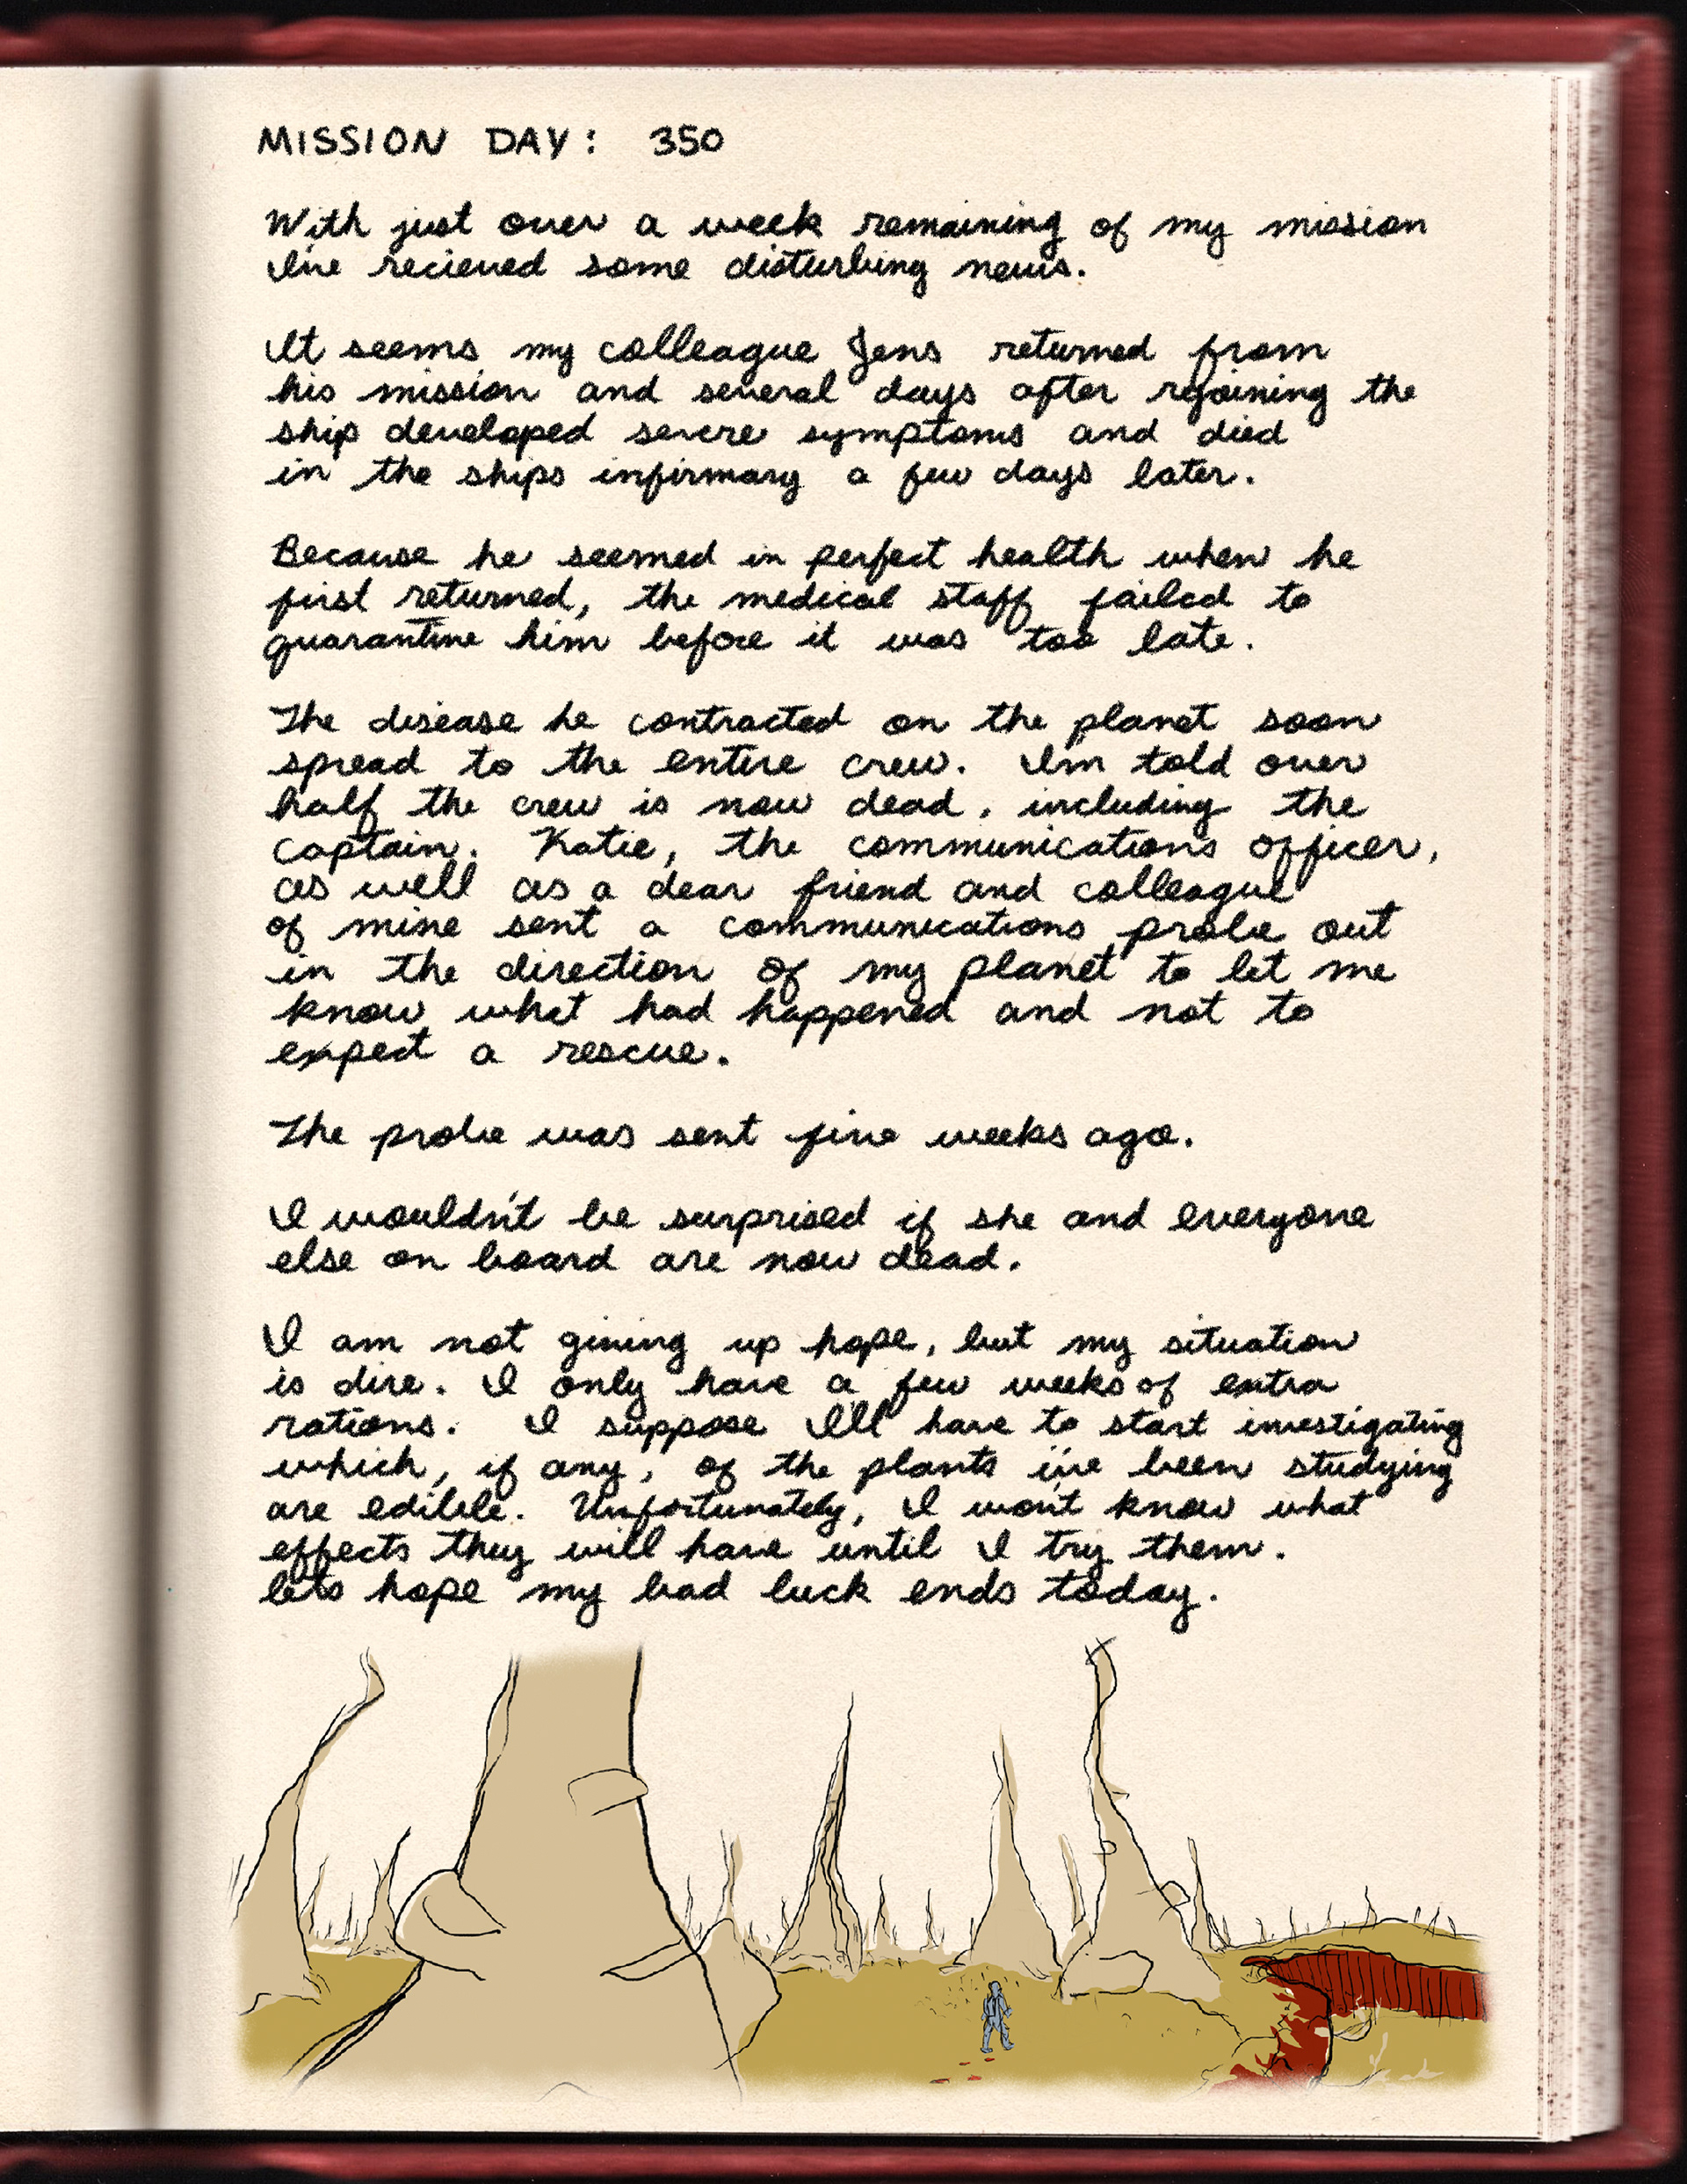 MISSION DAY: 350
With just over a week remaining of my mission
I've recieved some disturbing news.
It seems my colleague Jens returned from
his mission and several days after rejoining the
ship developed severe symptoms and died
in the ships infirmary a few days later.
Because he seemed in perfect health when he
first returned, the medical staff failed to
quarantine him before it was too late.
The disease he contracted on the planet soon
spread to the entire crew. I'm told over
half the crew is now dead, including the
captain. Katie, the communications officer,
as well as a dear friend and colleague
of mine sent a communications probe out
in the direction of my planet to let me
know what had happened and not to
expect a rescue.
The probe was sent five weeks ago.
I wouldn't be surprised if she and everyone
else on board are now dead.
I am not giving up hope, but my situation
is dire. I only have a few weeks of extra
rations. I suppose I'll have to start investigating
which, if any, of the plants i've been studying
are edible. Unfortunately, I won't know what
effects they will have until I try them.
lets hope my bad luck ends today.